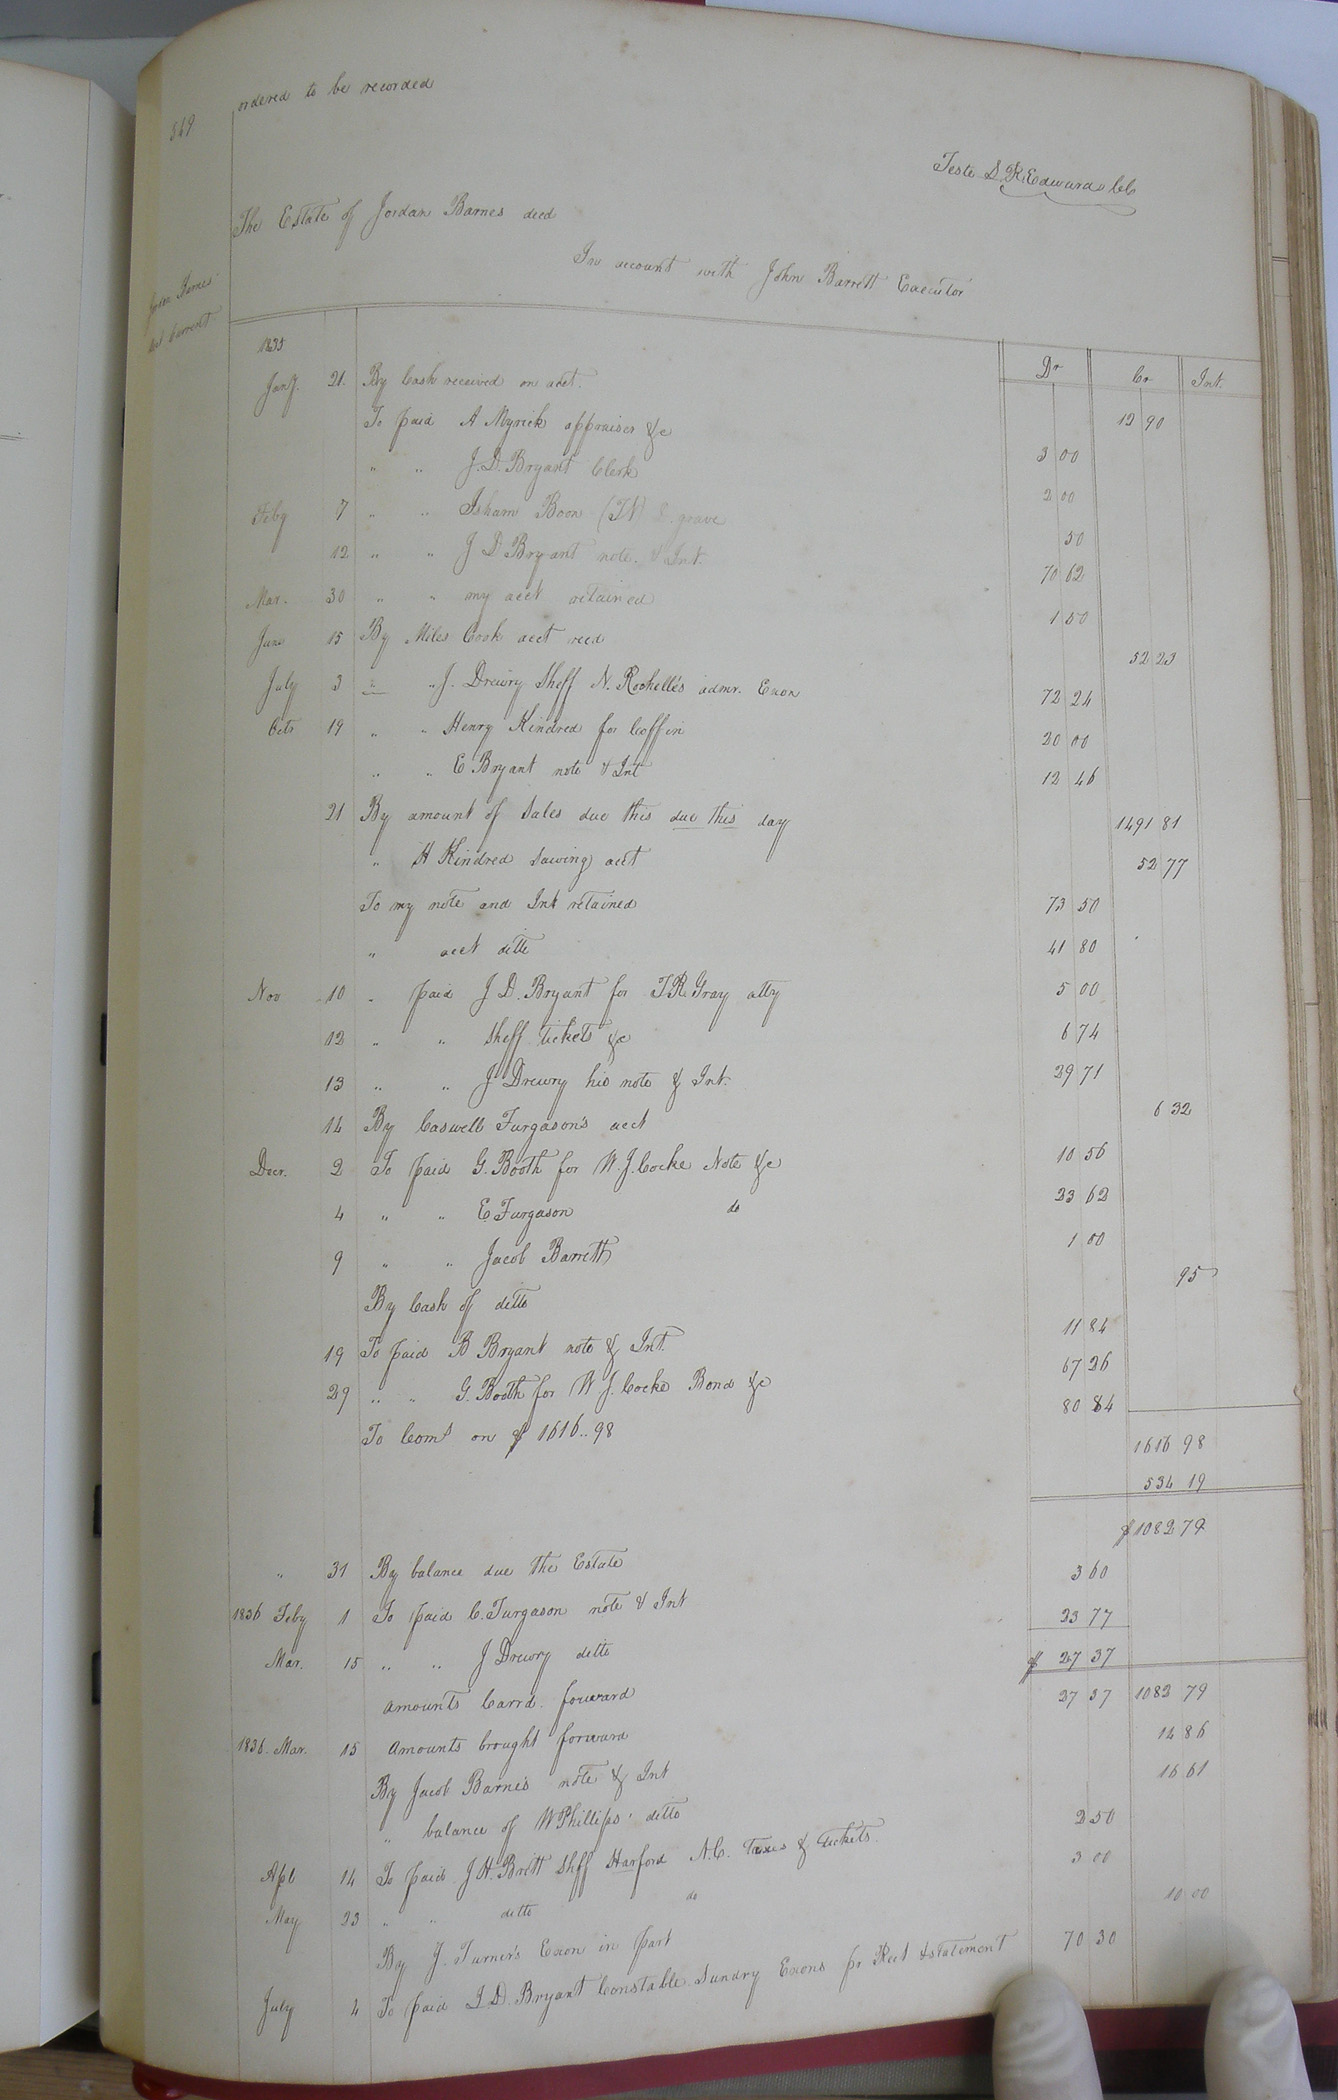 ordered to be recorded
519
Teste S. R. Edwards CC
The Estate of Jordan Barnes decd
In account with John Barrett Executor
Jordan Barnes
act Current
1835 Dr Cr Int.
Jany. 21. By Cash received on acct. 12 90
To paid A Myrick appraiser &c 3 00
" " J. D. Bryant Clerk 2 00
Feby 7 " " Isham Boon (TN) grave 50
12 " " J D Bryant note. & Int. 70 62
Mar. 30 " " my acct retained 1 50
June 15 By Miles Cook acct recd 52 23
July 3 " " J. Drewry Sheff N. Rochelle's admr. Exon 72 24
Octr 19 " " Henry Kindred for Coffin 20 00
" " E Bryant note & Int 12 46
21 By amount of Sales due this due this day 1491 81
" H Kindred Sawing acct 52 77
To my note and Int retained 73 50
" acct ditto 41 80
Nov 10 " paid J D. Bryant for T. R. Gray atty 5 00
12 " " Sheff tickets &c 6 74
13 " " J Drewry his note & Int. 29 71
14 By Caswell Furgason's acct 6 32
Decr. 2 To paid G. Booth for W. J. Cocke Note &c 10 56
4 " " E. Furgason do 23 62
9 " " Jacob Barrett 1 00
By Cash of ditto 95
19 To paid B Bryant note & Int. 11 84
29 " " G. Booth for W. J. Cocke Bond &c 67 26
To Coms on $ 1616..98 80 84
1616 98
534 19
$1082 79
" 31 By balance due the Estate
1836 Feby 1 To paid C. Furgason note & Int 3 60
Mar. 15 " " J Drewry ditto 23 77
Amounts Carrd. forward $ 27 37
1836. Mar. 15 Amounts brought forward 27 37 1082 79
By Jacob Barnes note & Int 14 86
" balance of W Phillips' ditto 16 61
Apl 14 To paid J. H. Britt Shff Harford N.C. Taxes & tickets. 2 50
May 23 " " ditto do 3 00
By J. Turner's Exon in part 10 00
July 4 To paid J. D. Bryant Constable Sundry Exons pr Rect & statement 70 30